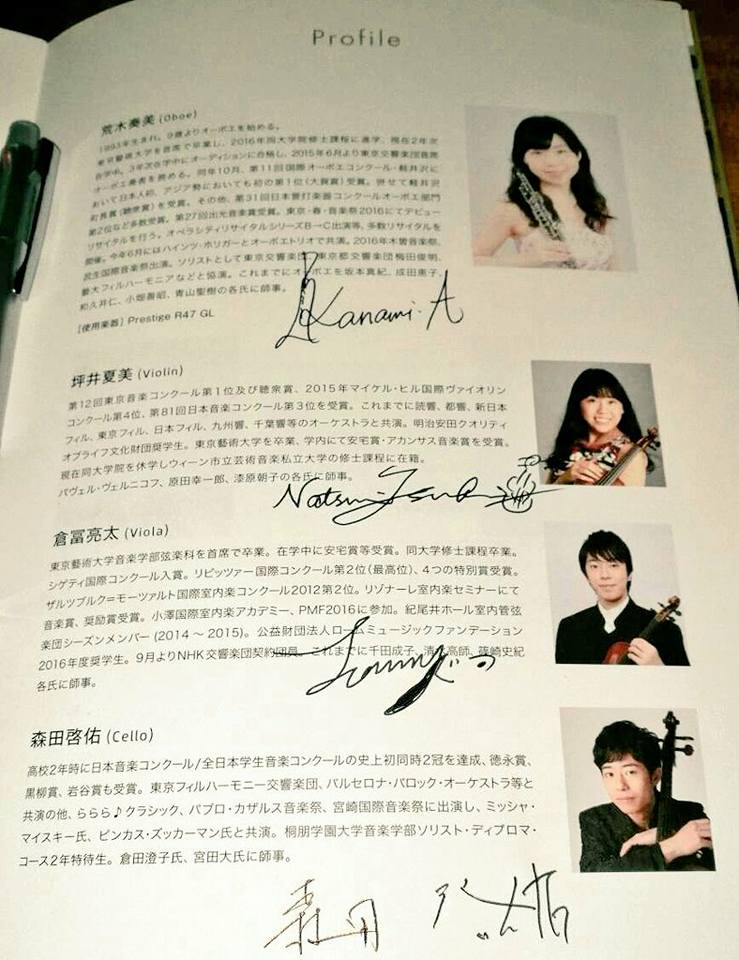 Profile
荒木奏美 (Oboe)
1993年生まれ。9歳よりオーボエを始める。
東京藝術大学を首席で卒業し、2016年同大学院修士課程に進学、現在2年次
在学中。3年次在学中にオーディションに合格し、2015年6月より東京交響楽団首席
オーボエ奏者を務める。同年10月、第11回国際オーボエコンクール・軽井沢に
おいて日本人初、アジア勢においても初の第1位(大賀賞)受賞。併せて軽井沢
町長賞(聴衆賞)を受賞。その他、第31回日本管打楽器コンクールオーボエ部門
第2位など多数受賞。第27回出光音楽賞受賞。東京・春・音楽祭2016にてデビュー
リサイタルを行う。オペラシティリサイタルシリーズB→C出演等、多数リサイタルを
開催。今年6月にはハインツ・ホリガーとオーボエトリオで共演。2016年木曽音楽祭、
武生国際音楽祭出演。ソリストとして東京交響楽団、東京都交響楽団梅田俊明、
藝大フィルハーモニアなどと協演。これまでにオーボエを坂本真紀、成田恵子、
和久井仁、小畑善昭、青山聖樹の各氏に師事。
[使用楽器] Prestige R47 GL
Kanami.A
坪井夏美 (Violin)
第12回東京音楽コンクール第1位及び聴衆賞、2015年マイケル・ヒル国際ヴァイオリン
コンクール第4位、第81回日本音楽コンクール第3位を受賞。これまでに読響、都響、新日本
フィル、東京フィル、日本フィル、九州響、千葉響等のオーケストラと共演。明治安田クオリティ
オブライフ文化財団奨学生。東京藝術大学を卒業、学内にて安宅賞・アカンサス音楽賞を受賞。
現在同大学院を休学しウィーン市立芸術音楽私立大学の修士課程に在籍。
パヴェル・ヴェルニコフ、原田幸一郎、漆原朝子の各氏に師事。
Natsumi Tsuboi
倉冨亮太 (Viola)
東京藝術大学音楽学部弦楽科を首席で卒業。在学中に安宅賞等受賞。同大学修士課程卒業。
シゲティ国際コンクール入賞。リピッツァー国際コンクール第2位(最高位)、4つの特別賞受賞。
ザルツブルク=モーツァルト国際室内楽コンクール2012第2位。リゾナーレ室内楽セミナーにて
音楽賞、奨励賞受賞。小澤国際室内楽アカデミー、PMF2016に参加。紀尾井ホール室内管弦
楽団シーズンメンバー(2014～2015)。公益財団法人ロームミュージックファンデーション
2016年度奨学生。9月よりNHK交響楽団契約団員。これまでに千田成子、清水高師、篠崎史紀
各氏に師事。
森田啓佑 (Cello)
高校2年時に日本音楽コンクール/全日本学生音楽コンクールの史上初同時2冠を達成、徳永賞、
黒柳賞、岩谷賞も受賞。東京フィルハーモニー交響楽団、バルセロナ・バロック・オーケストラ等と
共演の他、ららら♪クラシック、パブロ・カザルス音楽祭、宮崎国際音楽祭に出演し、ミッシャ・
マイスキー氏、ピンカス・ズッカーマン氏と共演。桐朋学園大学音楽学部ソリスト・ディプロマ・
コース2年特待生。倉田澄子氏、宮田大氏に師事。
森田